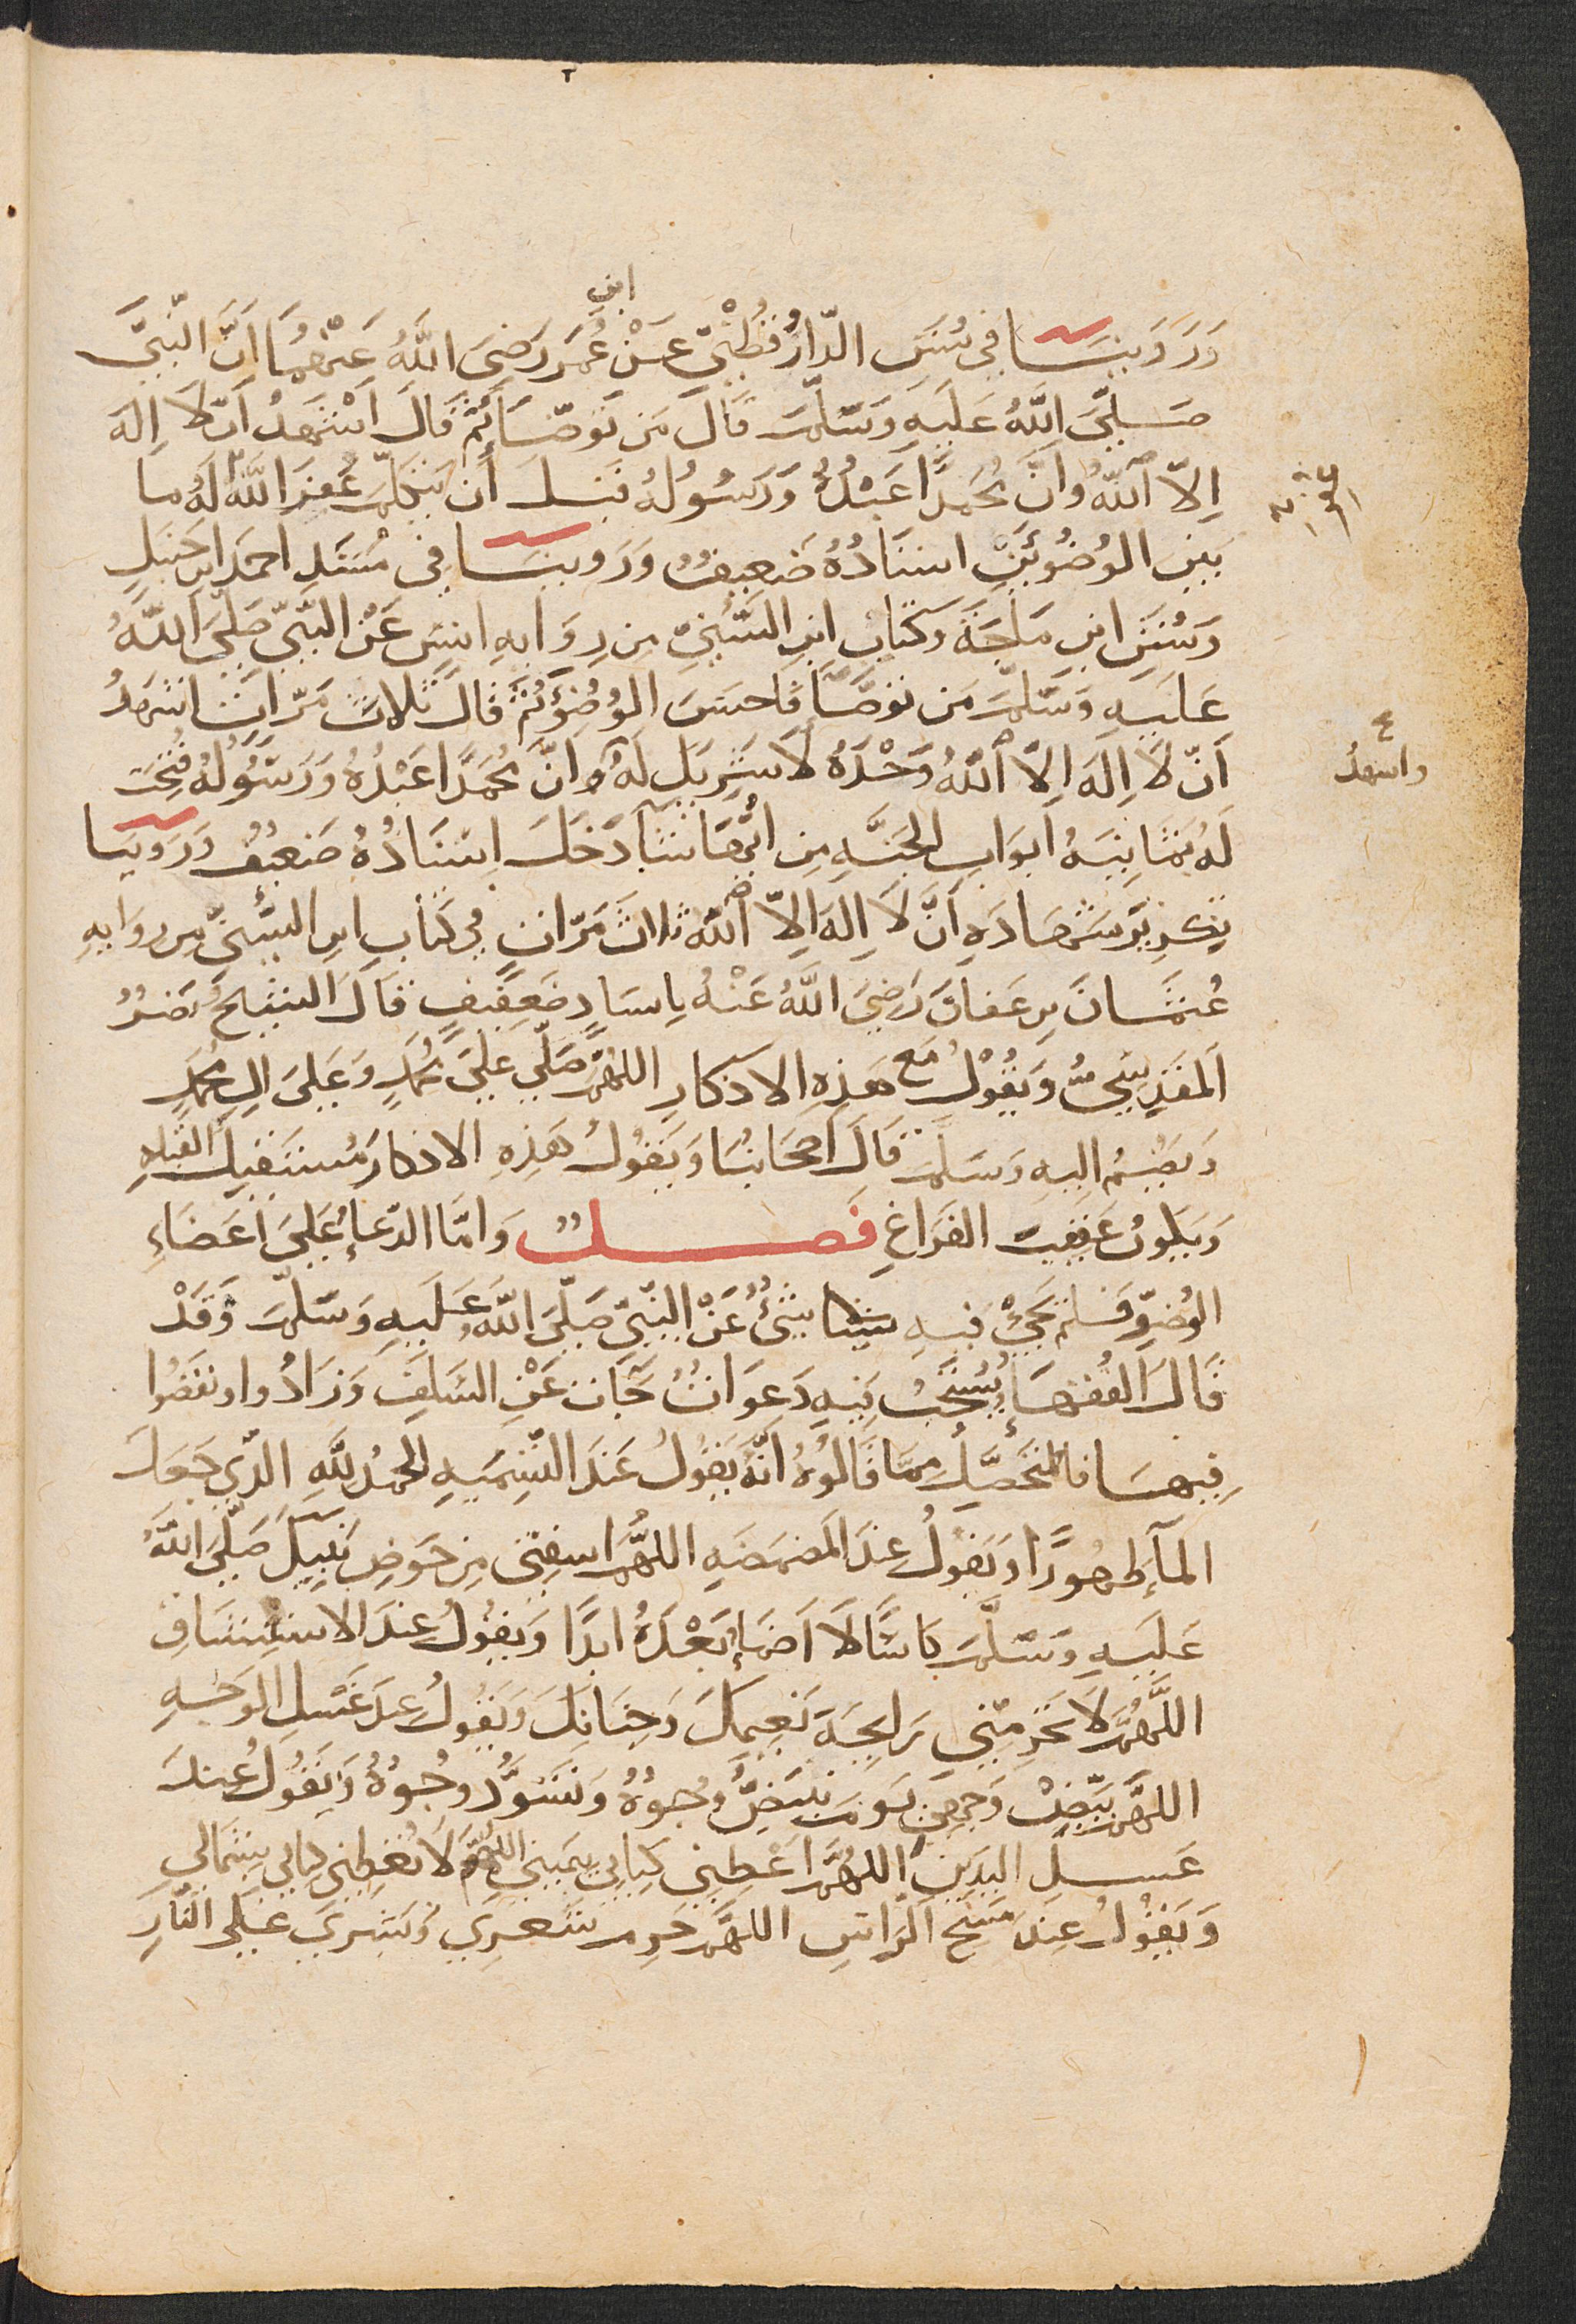 وَرَوَينَا فى سُنَنِ الدّارُقُطْنِىّ عَنْ ابن عُمَرَ رَضِىَ اللَّهُ عَنْهُمَا اَنَّ النَّبِىَّ
صَلَّى اللَّهُ عَلَيهِ وَسَلَّمَ قَالَ مَن تَوَضَّأَ ثُمَّ قَالَ اَشْهَدُ اَن لَا اِلَهَ
اِلّا اللَّهُ وَاَنَّ مُحَمَّدًا عَبْدُهُ وَرَسُولُهُ قَبلَ اَن يَتَكَلَّمَ غُفِرَ اللَّهُ لَهُ ما
بَينَ الوُضُوئَينِ اسنَادُهُ ضَعِيفٌ وَرَوينَا فِى مُسْنَدِ احمَدَ ابنِ حَنبَلٍ
وَسُنَنِ ابنِ مَاجَةَ وَكتَابِ ابنِ السُّنِىِّ مِن رِوَايهِ انَسَ عَنْ النَّبِىِّ صَلَّى اللَّهُ
عَلَيهِ وَسَلَّمَ مَن تَوَضَّأَ فَاَحسَنَ الوُضُوْءَ ثُمَّ قَالَ ثَلَاثَ مَرّاتٍ اشهَدُ
اَنّ لَا اِلَهَ اِلّا اللَّهُ وَحْدَهُ لَا شَرِيكَ لَهُ وَاَنَّ مُحَمَّدًا عَبْدُهُ وَرَسُوْلُهُ فُتِحَت
واشهدُ
لَهُ ثمَانِيَهُ اَبوَابِ الجَنَّهِ مِن اَيِّهَا شَآ دَخَلَ اِسْنَادُهُ ضَعِيْفٌ وَرَوَينَا
تِكرِيرَ شَهَادَهِ اَنَّ لَا اِلَهَ اِلّا اللّهُ ثلاث مَرّاتٍ فى كتَابِ ابنِ السُّنِّىِّ من روايهِ
عُثمَانَ بنِ عَفانَ رَضِىَ اللَّهُ عَنْهُ باِسنادٍ ضَعِيفٍ قَالَ الشيخُ نَصرُ
المَقدِسِىُّ وَيَقُوْلُ مَع هَذِهِ الاذكارِ اللهُمَّ صَلِّى عَلَى مُحَمَّدٍ وَعَلَى الِ مُحَمَّدٍ
وَيضُمُ اِلَيهِ وَسَلَّم قَالَ اَصحَابُنَا وَيَقُولُ هَذِهِ الاذكارَ مُستَقبِلَ القبلهِ
وَيَكونُ عَقِيْبَ الفَرَاغِ فَصلٌ وَامَّا الدّعاءُ عَلَى اَعضَاءِ
الوُضوِ فَلَم يَجِئْ فيهِ شيئا شئٌ عَنْ النَّبِىِّ صَلَّى اللَّهُ عَلَيهِ وَسَلَّمَ وَقَدْ
قَالَ الفُقهَاءُ يُستَحَبُ فيهِ دَعَوَاتٌ جَآت عَنِ السَلَفِ وَزَادُوا ونقَصُوا
فِيهَا فالمتحَصِّلُ مِمَّا قَالُوهُ اَنَّهُ يَقُولُ عَندَ التّسمِيَهِ الحَمدُ للَّهِ الّذِى جَعَلَ
المآءَ طَهُورًا وَيَقُولُ عِندَ المَضمَضَهِ اللهُمَّ اسقِنى مِن حَوضِ نَبِيّكَ صَلَّى اللَّهُ
عَلَيهِ وَسَلَّمَ كَاسًا لَا اَضمَاءُ بَعْدَهُ ابدًا وَيقُولُ عِندَ الاستِنشَاقِ
اللَّهُمَّ لَا تَحرِمنِى رَايِحَةَ نَعِيمِكَ وَجِنَانِكَ وَيَقُولُ عِندَ غَسْلِ الوَجهِ
اللهُمَّ بَيّضْ وَجهِى يَومَ تَبْيَضُّ وُجُوْهٌ وَتَسْوَدُّ وجُوْهٌ وَيَقُولُ عِندَ
غَسلِ اليَدَينِ اللهُمَّ اَعْطِنِى كِتَابِى بِيَمِينِى اللهُمَّ لَا تُعْطِنِى كِتَابِى بِشِمَالِى
وَيَقُوْلُ عِندَ مَسْحِ الرَّاسِ اللهُمَّ حَرِم شَعرِى وَبَشَرِى عَلَى النَّارِ